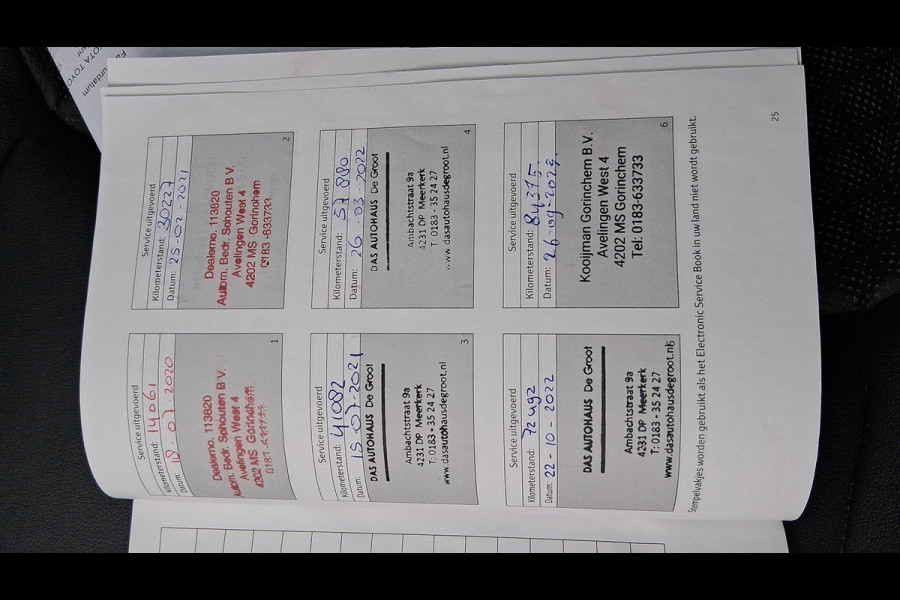 Service uitgevoerd
Kilometerstand: 14061
Datum: 18-07-2020
Dealerno. 113820
Autom. Bedr. Schouten B.V.
Avelingen West 4
4202 MS Gorinchem
0183-633733
1
Service uitgevoerd
Kilometerstand: 30227
Datum: 25-02-2021
Dealerno. 113820
Autom. Bedr. Schouten B.V.
Avelingen West 4
4202 MS Gorinchem
0183-633733
2
Service uitgevoerd
Kilometerstand: 41082
Datum: 15-07-2021
DAS AUTOHAUS De Groot
Ambachtstraat 9a
4231 DP Meerkerk
T: 0183 - 35 24 27
www.dasautohausdegroot.nl
3
Service uitgevoerd
Kilometerstand: 57 880
Datum: 26-03-2022
DAS AUTOHAUS De Groot
Ambachtstraat 9a
4231 DP Meerkerk
T: 0183 - 35 24 27
www.dasautohausdegroot.nl
4
Service uitgevoerd
Kilometerstand: 72492
Datum: 22-10-2022
DAS AUTOHAUS De Groot
Ambachtstraat 9a
4231 DP Meerkerk
T: 0183 - 35 24 27
www.dasautohausdegroot.nl
5
Service uitgevoerd
Kilometerstand: 84375
Datum:
Kooijman Gorinchem B.V.
Avelingen West 4
4202 MS Gorinchem
Tel: 0183-633733
6
Stempelvakjes worden gebruikt als het Electronic Service Book in uw land niet wordt gebruikt.
25